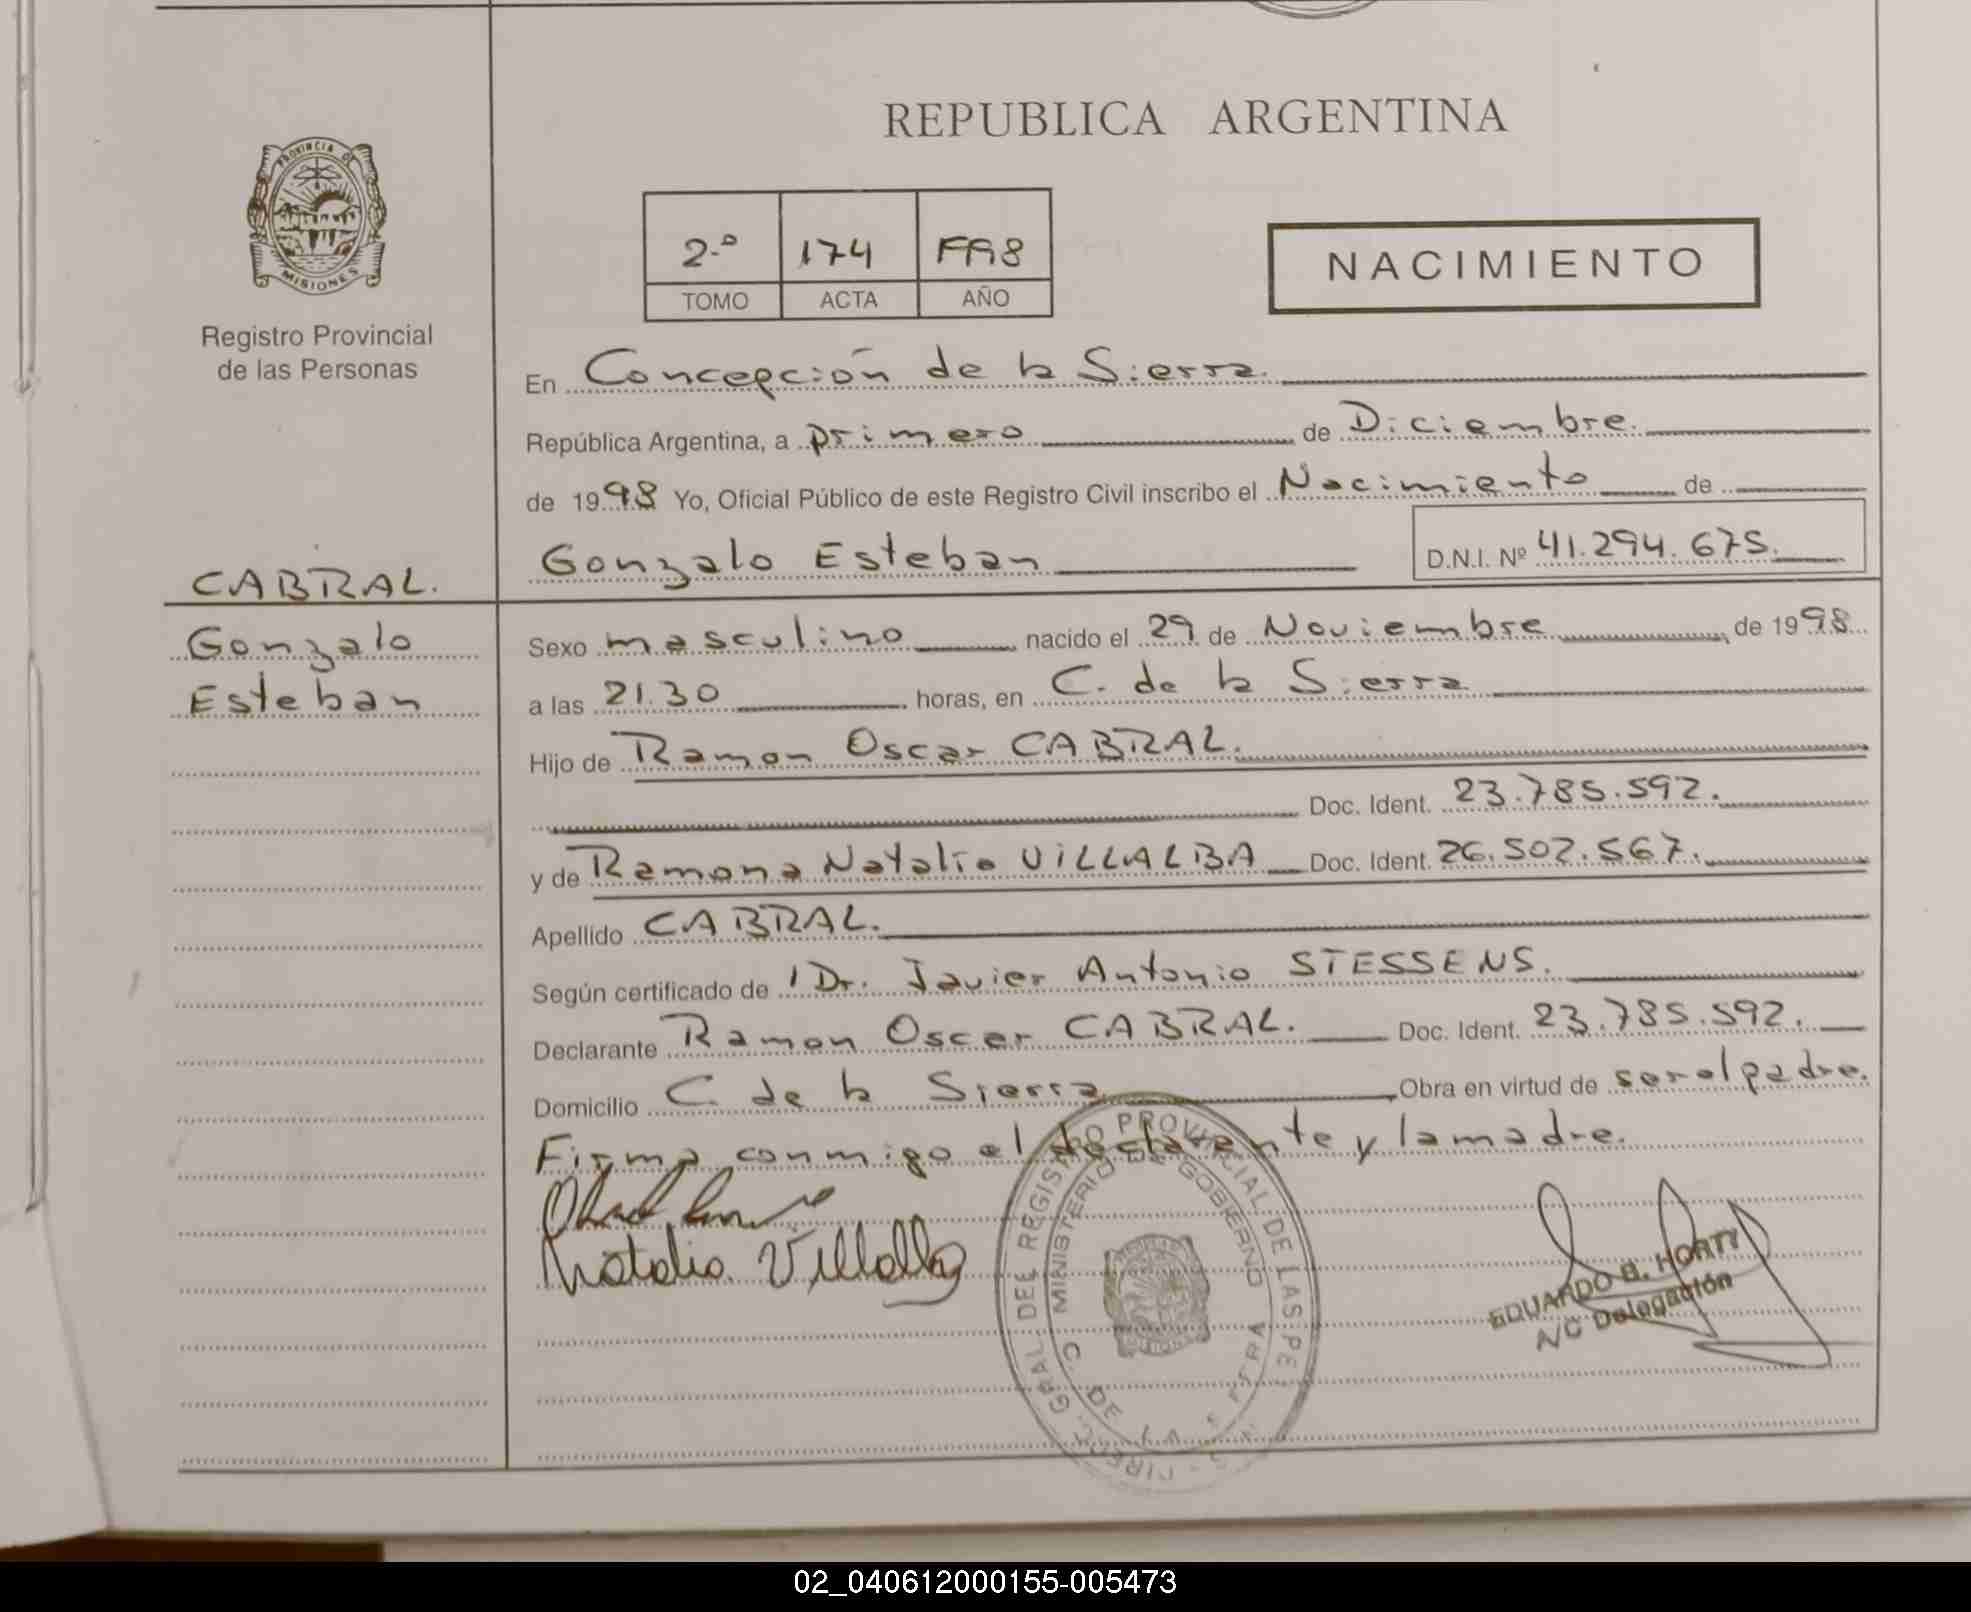 REPUBLICA ARGENTINA
PROVINCIA DE
MISIONES
Registro Provincial
de las Personas
2.º 174 1998
TOMO ACTA AÑO
NACIMIENTO
En Concepción de la Sierra.
República Argentina, a primero de Diciembre.
de 1998 Yo, Oficial Público de este Registro Civil inscribo el Nacimiento de
Gonzalo Esteban
D.N.I. Nº 41.294.675.
CABRAL.
Gonzalo
Esteban
Sexo masculino nacido el 29 de Noviembre, de 1998
a las 21.30 horas, en C. de la Sierra
Hijo de Ramon Oscar CABRAL.
Doc. Ident. 23.785.592.
y de Ramona Natalia VILLALBA Doc. Ident. 26.502.567.
Apellido CABRAL.
Según certificado de 1 Dr. Javier Antonio STESSENS.
Declarante Ramon Oscar CABRAL. Doc. Ident. 23.785.592.
Domicilio C. de la Sierra, Obra en virtud de ser el padre.
Firma conmigo el declarante y la madre.
Natalia Villalba
GRAL DEL REGISTRO PROVINCIAL DE LAS PE
MINISTERIO DE GOBIERNO
C. DE LA
EDUARDO B. HORT
A/C Delegación
02_040612000155-005473